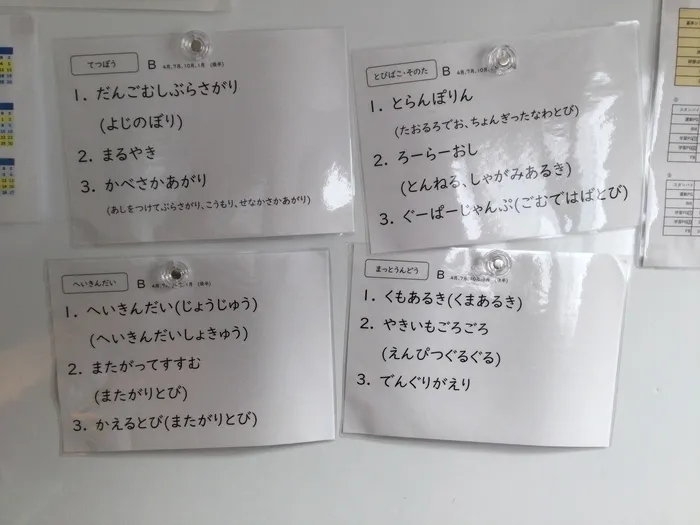 てつぼう B 4月、7月、10月、1月
1. だんごむしぶらさがり
(よじのぼり)
2. まるやき
3. かべさかあがり
(あしをつけてぶらさがり、こうもり、せなかさかあがり)
とびばこ・そのた B 4月、7月、10月、
1. とらんぽりん
(たおるろでお、ちょんぎったなわとび)
2. ろーらーおし
(とんねる、しゃがみあるき)
3. ぐーぱーじゃんぷ(ごむではばとび)
へいきんだい B
1. へいきんだい(じょうじゅう)
(へいきんだいしょきゅう)
2. またがってすすむ
(またがりとび)
3. かえるとび(またがりとび)
まっとうんどう B 4月、7月、10月、1月
1. くもあるき(くまあるき)
2. やきいもごろごろ
(えんぴつぐるぐる)
3. でんぐりがえり